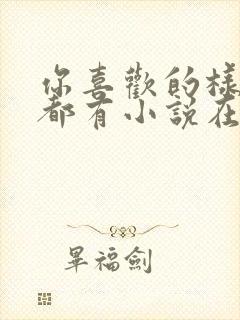 你喜歡的樣
都有小說在
畢福劍